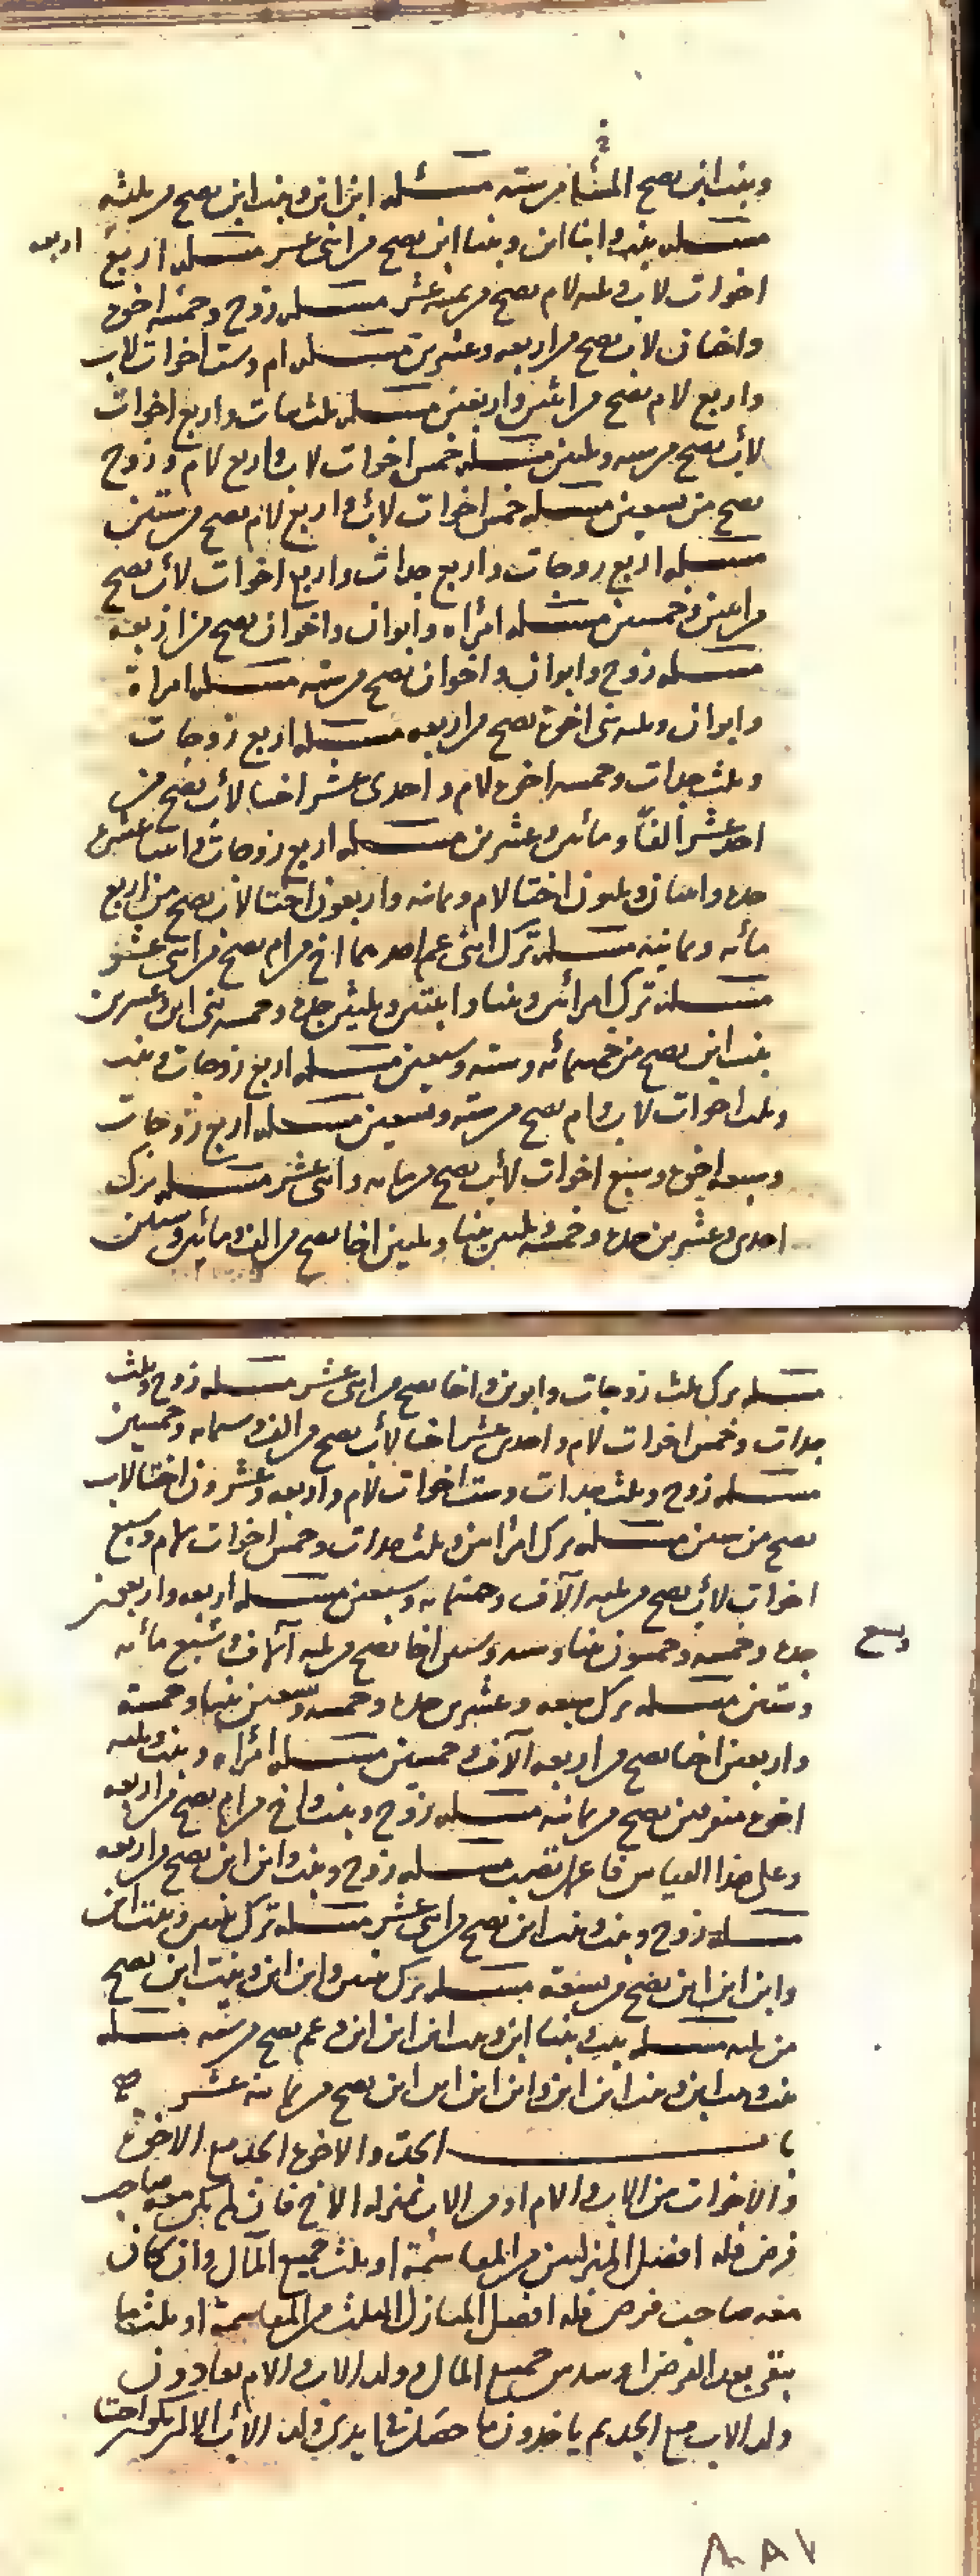 وبنت ابن تصح المسئلة من ستة مسئله ابن ابن وبنت ابن تصح من ثلثه
مسئله بنت وابنا ابن وبنتا ابن تصح من اثنى عشر مسئله اربع
اربعه
اخوات لاب وثلثه لام تصح من ثمنيه عشر مسئله زوج وخمسه اخوة
واختان لاب تصح من اربعه وعشرين مسئله ام وست اخوات لاب
واربع لام تصح من اثنين واربعين مسئله ثلث جدات واربع اخوات
لاب تصح من سته وثلثين مسئله خمس اخوات لاب واربع لام وزوج
تصح من تسعين مسئله خمس اخوات لاب واربع لام تصح من ستين
مسئله اربع زوجات واربع جدات واربع اخوات لاب تصح
من اثنين وخمسين مسئله امراه وابوان واخوان تصح من اربعه
مسئله زوج وابوان واخوان تصح من سته مسئله امراة
وابوان وثلثه بنى اخوة تصح من اربعه مسئله اربع زوجات
وثلث جدات وخمسه اخوة لام واحدى عشر اختا لاب تصح من
احد عشر الفا ومائتين وعشرين مسئله اربع زوجات واثنتا عشرة
جدة واثنان وثلثون اختا لام وثمانيه واربعون اختا لاب تصح من اربع
مائه وثمانية مسئله ترك ابنى عم احدهما اخ من ام تصح من اثنى عشر
مسئله ترك امراتين وبنتا وثلثين جدة وخمسه بنى ابن وعشرين
بنت ابن تصح من خمسمائه وسته وسبعين مسئله اربع زوجات وبنت
وثلث اخوات لاب وام تصح من سته وتسعين مسئله اربع زوجات
وسبعه اخوة وسبع اخوات لاب تصح من مائه واثنى عشر مسئله ترك
احدى وعشرين جدة وخمسه وثلثين بنتا وثلثين اختا تصح من الف ومائتين وستين
مسئله ترك ثلث زوجات وابوين واختا تصح من اثنى عشر مسئله زوج وثلث
جدات وخمس اخوات لام واحدى عشر اختا لاب تصح من الف وستمائه وخمسين
مسئله زوج وثلث جدات وست اخوات لام واربعه وعشرون اختا لاب
تصح من تسعين مسئله ترك امراتين وثلث جدات وخمس اخوات لام وسبع
اخوات لاب تصح من ثلثه الآف وخمسمائه وسبعين مسئله اربعه واربعين
جدة وخمسه وخمسون بنتا وسته وستين اختا تصح من ثلثه آلاف وتسع مائه
وتسع
وستين مسئله ترك سبعه وعشرين جدة وخمسه وسبعين بنتا وخمسة
واربعين اختا تصح من اربعه الآف وخمسين مسئله امراه وبنت وثلثه
اخوة متفرقين تصح من ثمانيه مسئله زوج وبنت واخ من ام تصح من اربعه
وعلى هذا القياس فاعمل تصب مسئله زوج وبنت وابن ابن تصح من اربعه
مسئله زوج وبنت وبنت ابن تصح من اثنى عشر مسئله ترك بنتين وبنت ابن
وابن ابن ابن تصح من تسعة مسئله ترك بنتين وابن ابن وبنت ابن تصح
من ثلثه مسئله بنت وبنتا ابن وبنت ابن ابن ابن وعم تصح من سته مسئله
بنت وبنت ابن وبنت ابن ابن وابن ابن ابن ابن تصح من ثمانيه عشر صح
باب الجد والاخوة الجد مع الاخوة
والاخوات من الاب والام او من الاب بمنزله الاخ فان لم يكن معه صاحب
فرض فله افضل المنزلتين من المقاسمة او ثلث جميع المال وان كان
معه صاحب فرض فله افضل المنازل الثلث من المقاسمة او ثلث ما
يبقى بعد الفرض او سدس جميع المال وولد الاب والام يعادون
ولد الاب مع الجد ثم ياخذون ما حصل فى ايدى ولد الاب الا ان يكون اختا
٨٨٧